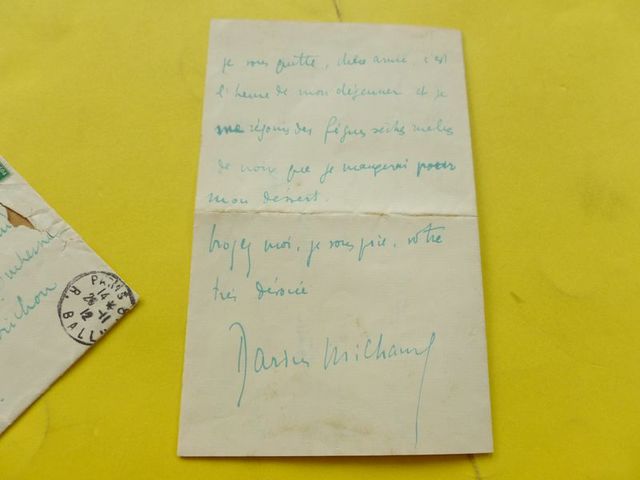 je vous quitte, chère amie, c'est
l'heure de mon déjeuner et je
me réjouis des figues sèches mêlées
de noix que je mangerai pour
mon dessert.
Croyez moi, je vous prie, votre
très dévouée
Darius Michaud
PARIS 8
14 *
26 - 11
12
R. BALL